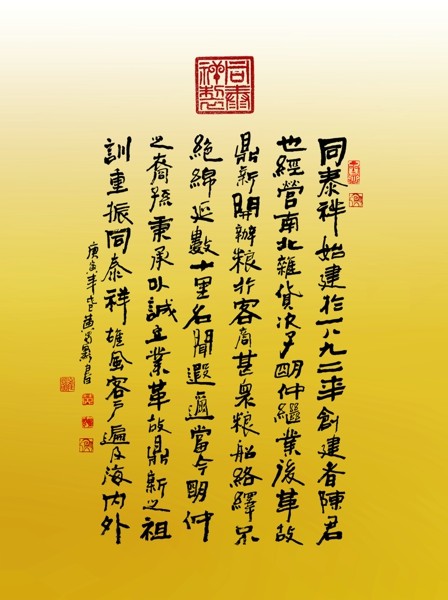 同泰祥製
同泰祥始建於一八九二年創建者陳君
也經營南北雜貨次子明仲繼業後革故
鼎新開辦糧行客商甚衆糧船絡繹不
絕綿延數十里名聞遐邇當今明仲
之裔孫秉承以誠立業革故鼎新之祖
訓重振同泰祥雄風客戶遍及海內外
庚寅年